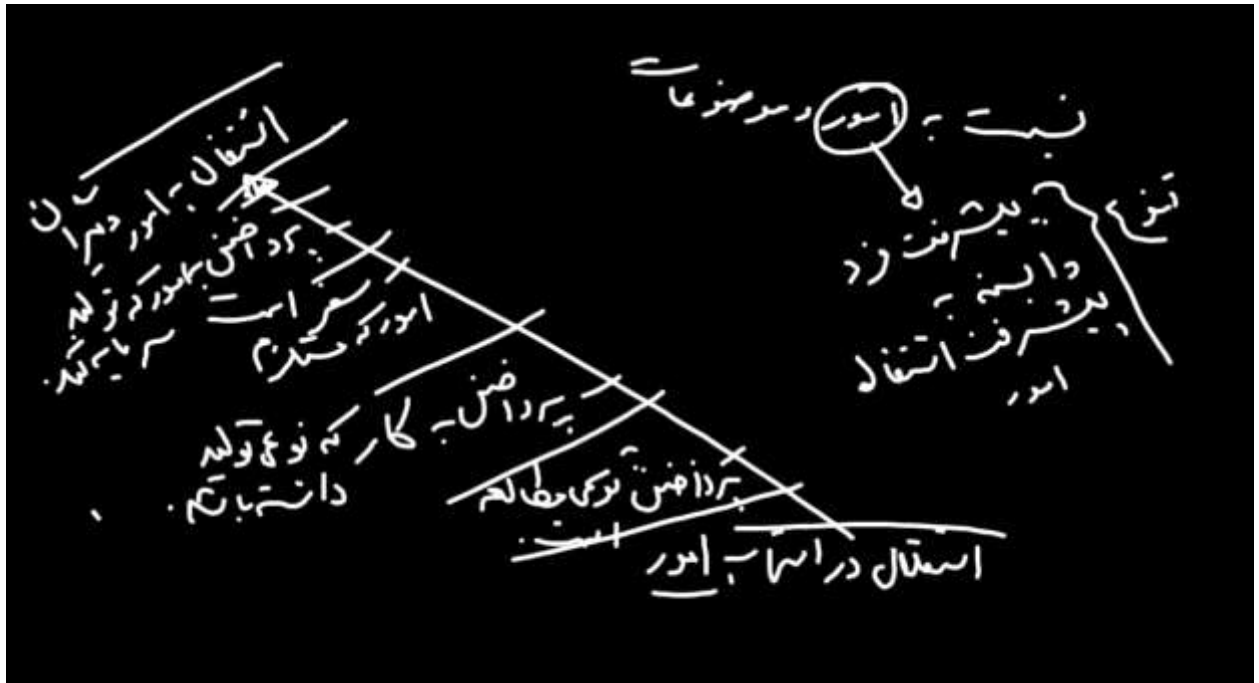 نسبت به امور و موضوعات
تنوع
پیشرفت فرد
وابسته به
پیشرفت اشتغال
امور
اشتغال به امور دیگران
پرداختن به امور که تولید
سرمایه کند.
امور که مستلزم
سفر است
پرداختن به کار که نوعی تولید
داشته باشم.
پرداختن نوعی مطالعه
است.
استقلال در انتخاب امور